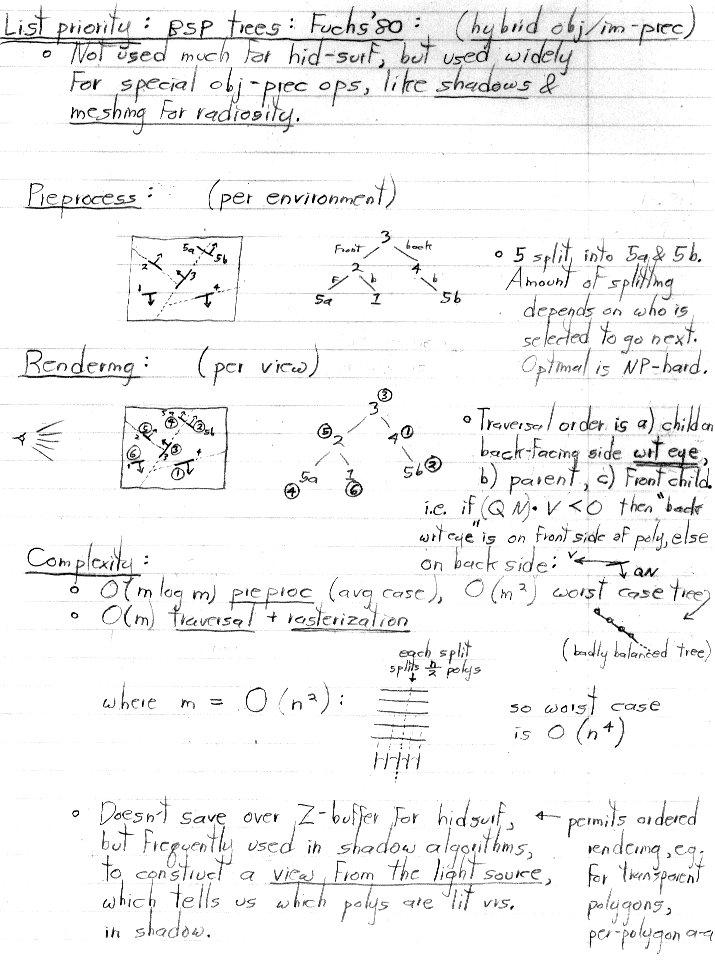 List priority: BSP trees: Fuchs '80: (hybrid obj/im-prec)
○ Not used much for hid-surf, but used widely
for special obj-prec ops, like shadows &
meshing for radiosity.
Preprocess: (per environment)
5a 5b
2 3
1 4
3
front back
2 4
F b b
5a 1 5b
○ 5 split into 5a & 5b.
Amount of splitting
depends on who is
selected to go next.
Optimal is NP-hard.
Rendering: (per view)
④ ② 5b
⑤ 2 ③ 3
⑥ 1 ① 4
③
3
⑤ 2 4 ①
5a 1 5b ②
④ ⑥
○ Traversal order is a) child on
back-facing side wrt eye,
b) parent, c) front child.
i.e. if (Q N)·V < 0 then "back
wrt eye" is on front side of poly, else
on back side: V QN
Complexity:
○ O(m log m) preproc (avg case), O(m²) worst case tree
○ O(m) traversal + rasterization
(badly balanced tree)
each split
splits n/2 polys
where m = O(n²):
so worst case
is O(n⁴)
○ Doesn't save over Z-buffer for hidsurf, ← permits ordered
but frequently used in shadow algorithms, rendering, eg.
to construct a view from the light source, for transparent
which tells us which polys are lit vrs. polygons,
in shadow. per-polygon a-a